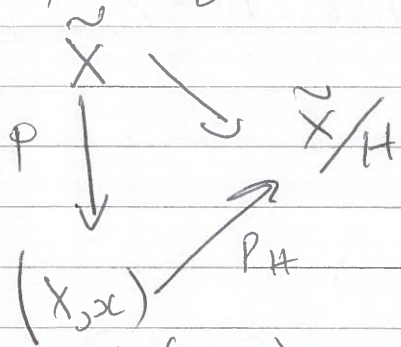 X̃
X̃/H
P
P_H
(X,x)